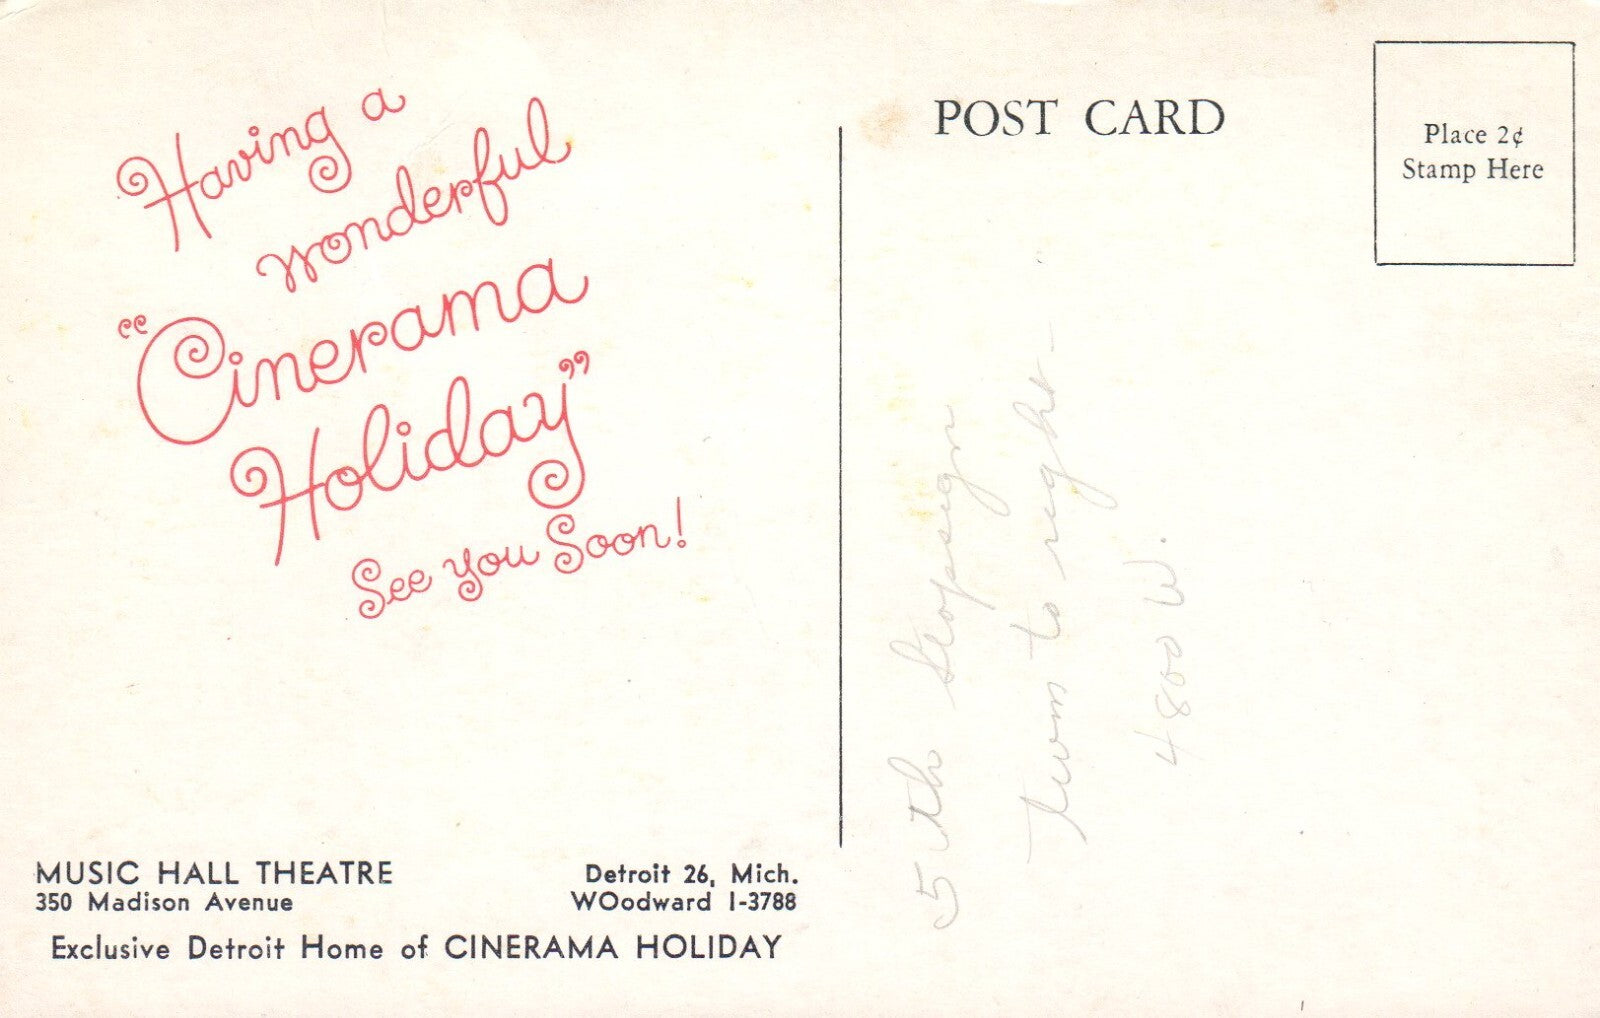 Having a
wonderful
"Cinerama
Holiday"
See you Soon!
MUSIC HALL THEATRE
350 Madison Avenue
Detroit 26, Mich.
WOodward 1-3788
Exclusive Detroit Home of CINERAMA HOLIDAY
POST CARD
Place 2¢
Stamp Here
5th Stopsign
Turn to right -
4800 W.